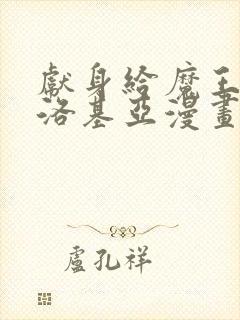 獻身給魔王伊
洛基亞漫畫
盧孔祥